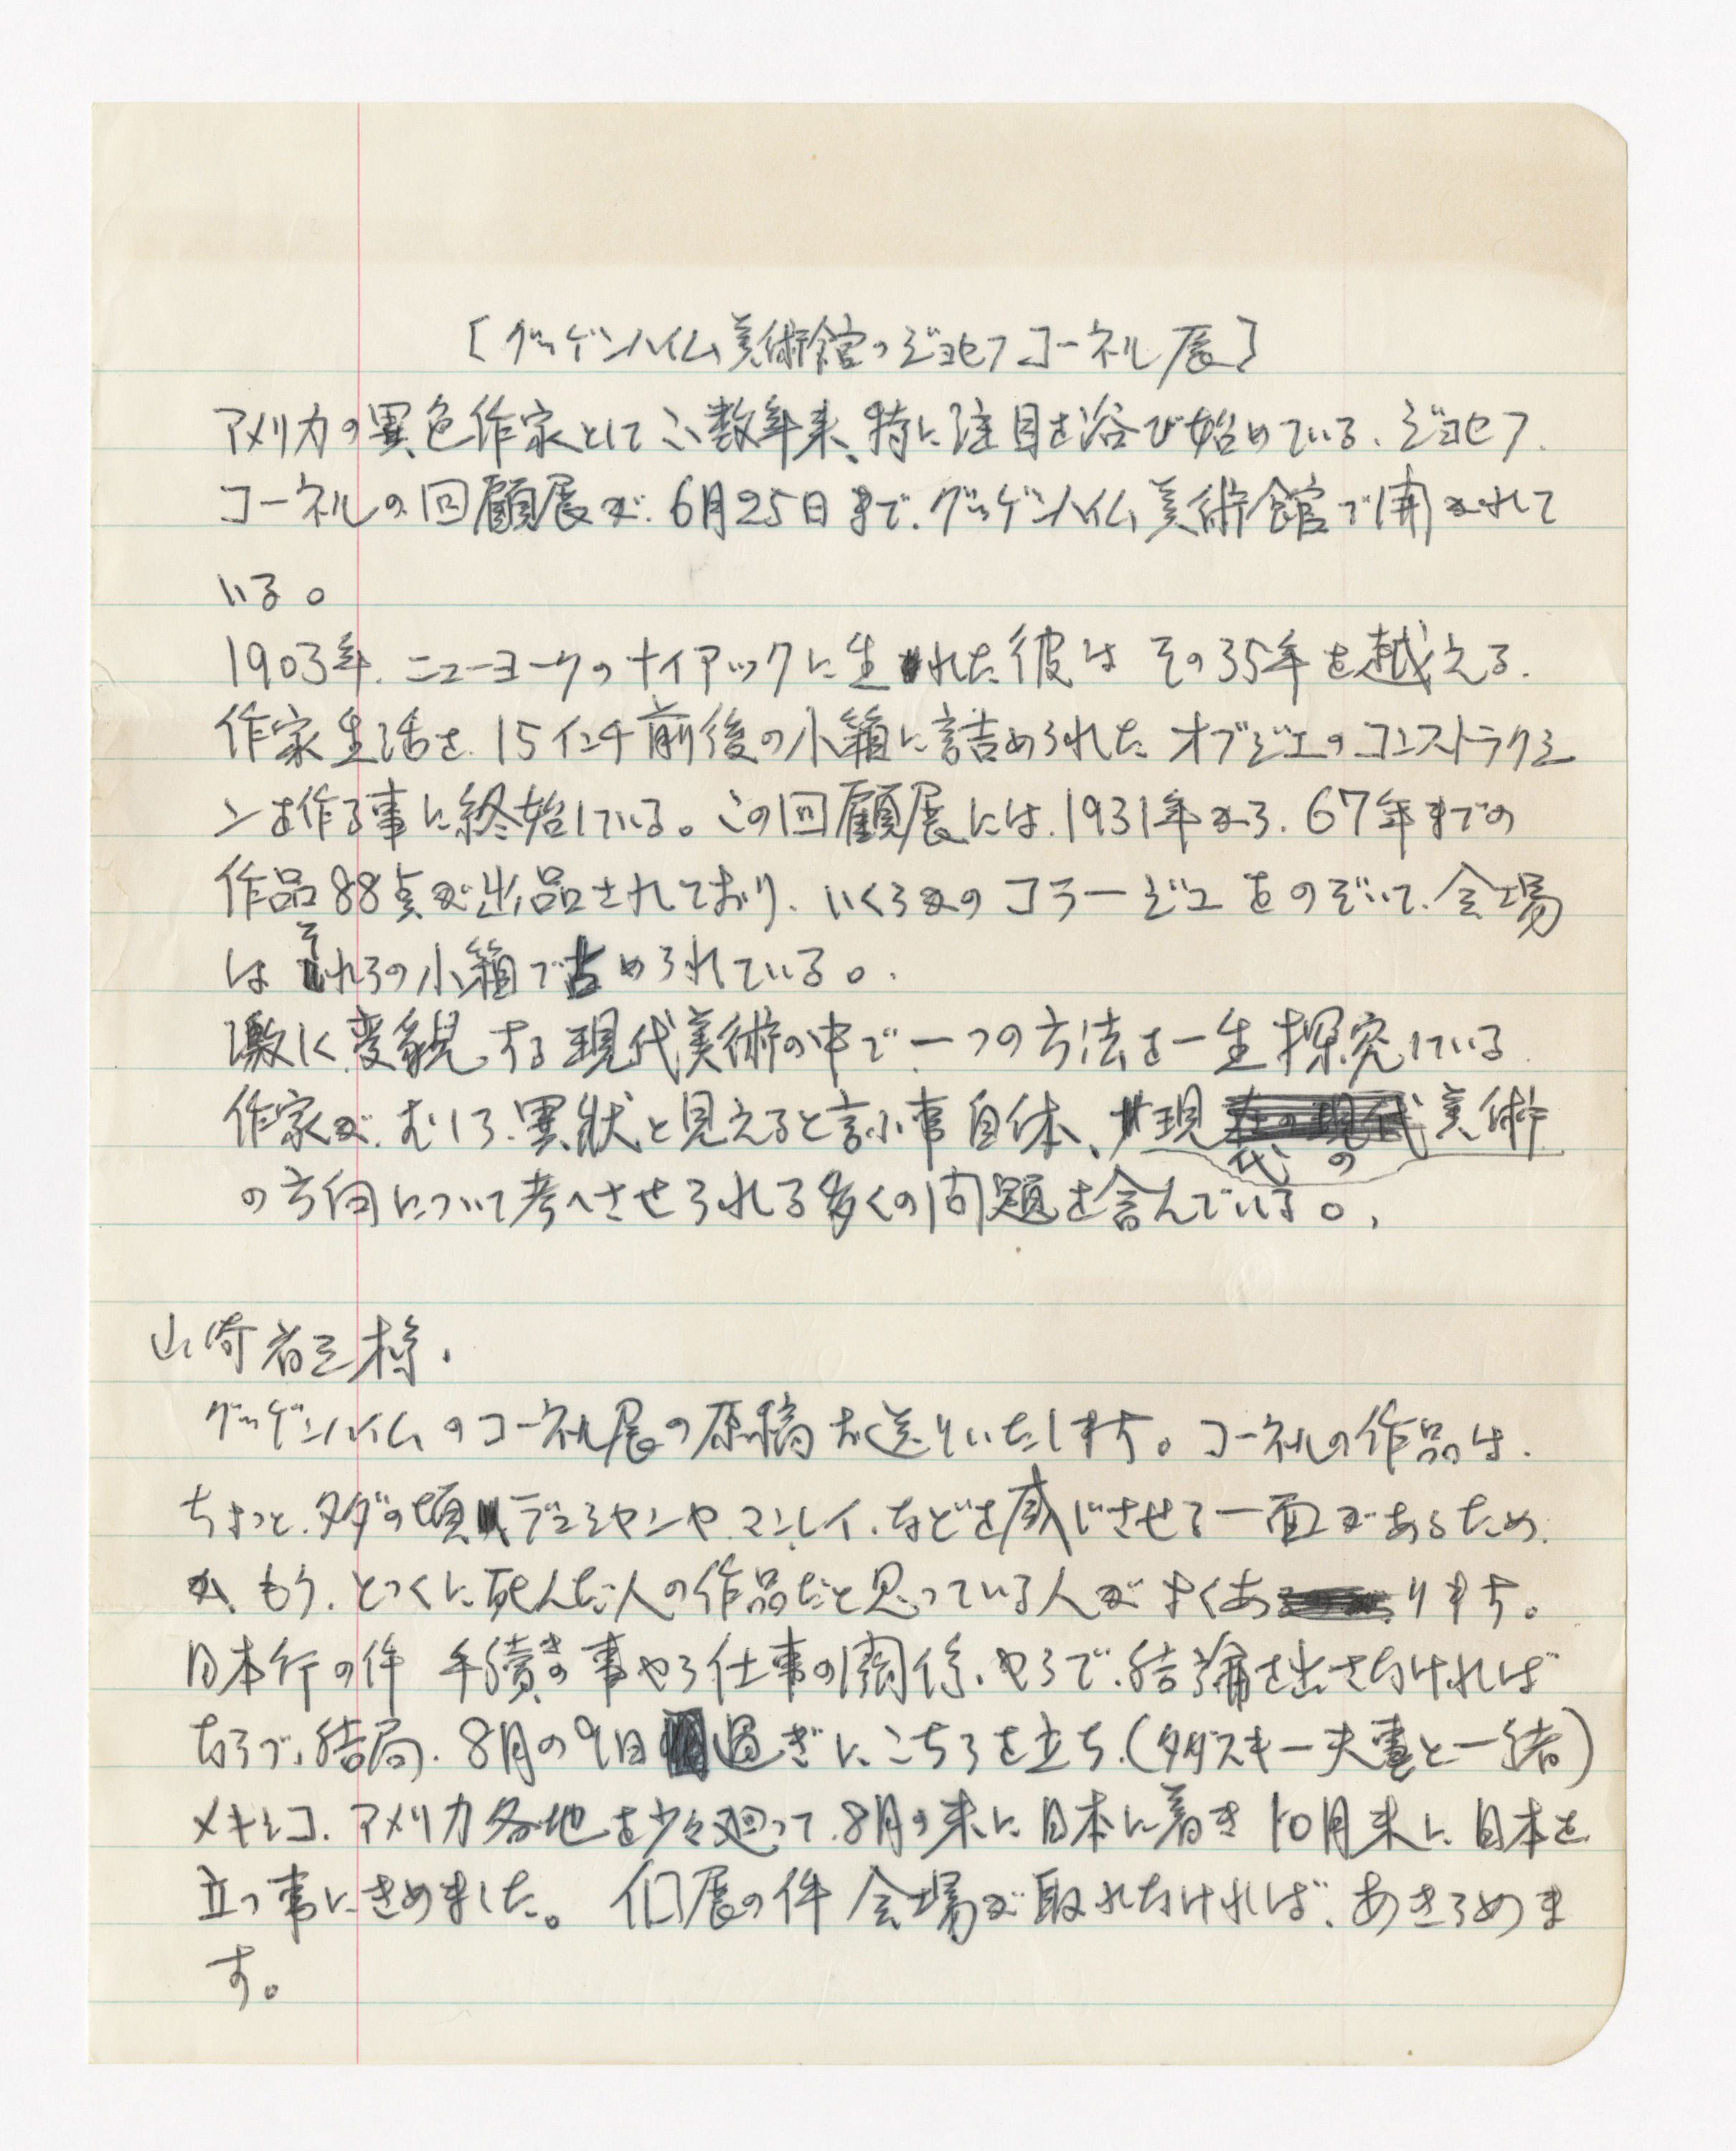 [グッゲンハイム美術館のジョセフコーネル展]
アメリカの異色作家としてこゝ数年来、特に注目を浴び始めている、ジョセフ、
コーネルの回顧展が、6月25日まで、グッゲンハイム美術館で開かれて
いる。
1903年、ニューヨークのナイアックに生れた彼は その35年を越える、
作家生活を、15インチ前後の小箱に詰められた オブジェのコンストラクショ
ンを作る事に終始している。この回顧展には、1931年から、67年までの
作品88点が出品されており、いくらかのコラージュをのぞいて、会場
は それらの小箱で占められている。
激しく変貌する現代美術の中で一つの方法を一生探究している
作家が、むしろ、異状と見えると言ふ事自体、現代の美術
の方向について考へさせられる多くの問題を含んでいる。
山崎省三様、
グッゲンハイムのコーネル展の原稿お送りいたします。コーネルの作品は、
ちょっと、ダダの頃、デュシャンや、マンレイ、などを感じさせる一面があるため、
か、もう、とっくに死んだ人の作品だと思っている人がよくあります。
日本行の件 手続きの事やら仕事の関係、やらで、結論を出さなければ
ならず、結局、8月の9日過ぎにこちらを立ち、(タダスキー夫妻と一緒)
メキシコ、アメリカ各地を少々廻って、8月の末に日本に着き 10月末に 日本を
立つ事にきめました。 個展の件 会場が取れなければ、あきらめま
す。